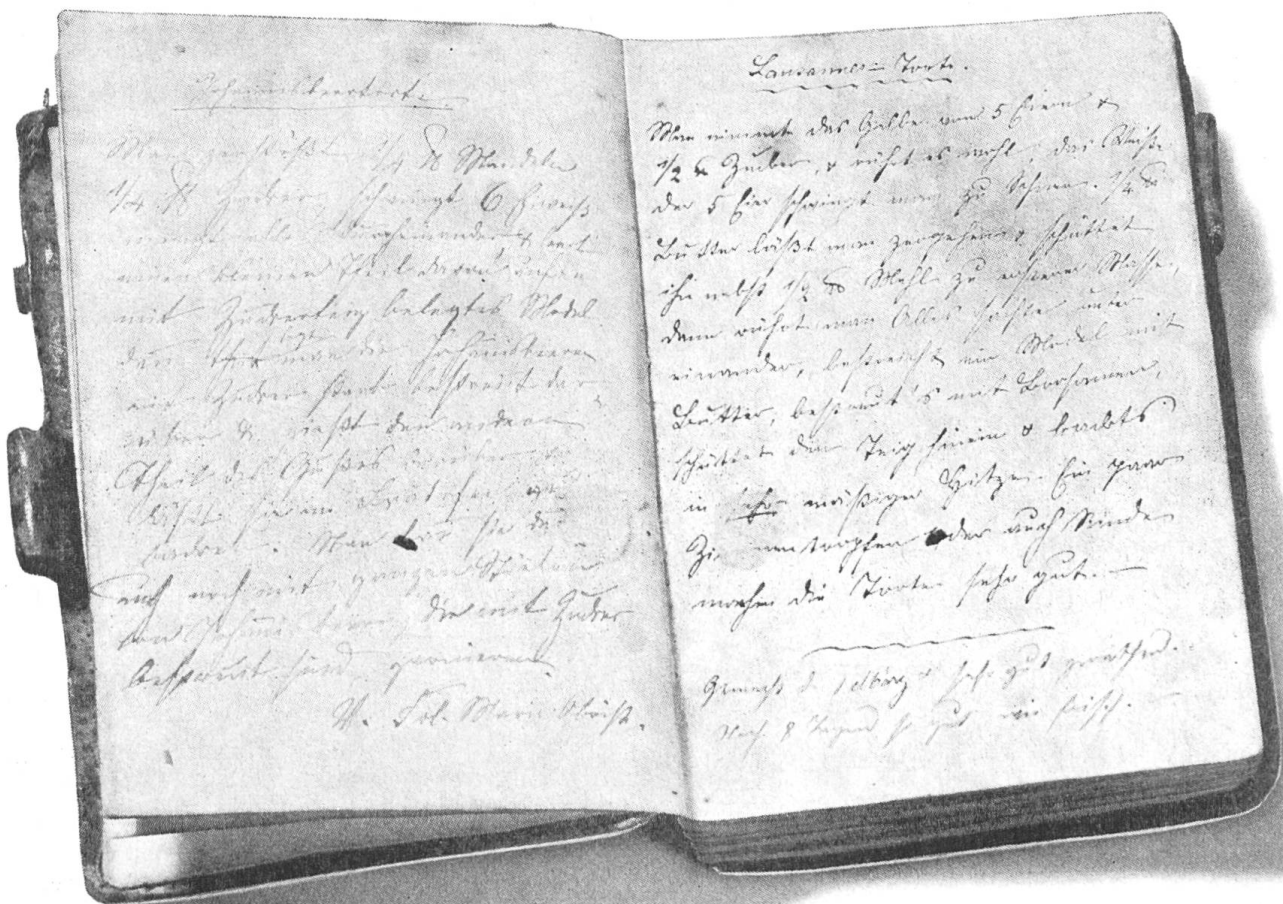 Johannisbeertorte.
Man zerstößt 1/4 ℔ Mandeln
1/4 ℔ Zucker, schwingt 6 Eiweiß
mengt alles durcheinander, &
einen kleinen Theil davon
mit Zuckerteig belegtes Model
dann legt man die Johannisbeeren
mit Zucker
& gießt den andern
Theil des Gußes darüber
Man
auch noch mit ganzen
von Johannisbeeren, die mit Zucker
bestreut sind garnieren.
V. Frl. Marie
Lausanner-Torte.
Man nimmt das Gelbe von 5 Eiern &
1/2 ℔ Zucker, & rührt es wohl, das Weiße
der 5 Eier schwingt man zu Schnee. 1/4 ℔
Butter läßt man zergehen & schüttet
ihn nebst 1/2 ℔ Mehl zu ersterer Masse,
dann rührt man Alles sachte unter
einander, bestreicht ein Model mit
Butter, bestreut's mit Brosamen,
schüttet den Teig hinein & backts
in sehr mäßiger Hitze. Ein paar
Zitronentropfen oder auch Rinde
machen die Torte sehr gut. —
Gemacht d. sehr gut gerathen.
Nach 8 Tagen so gut wie frisch. —